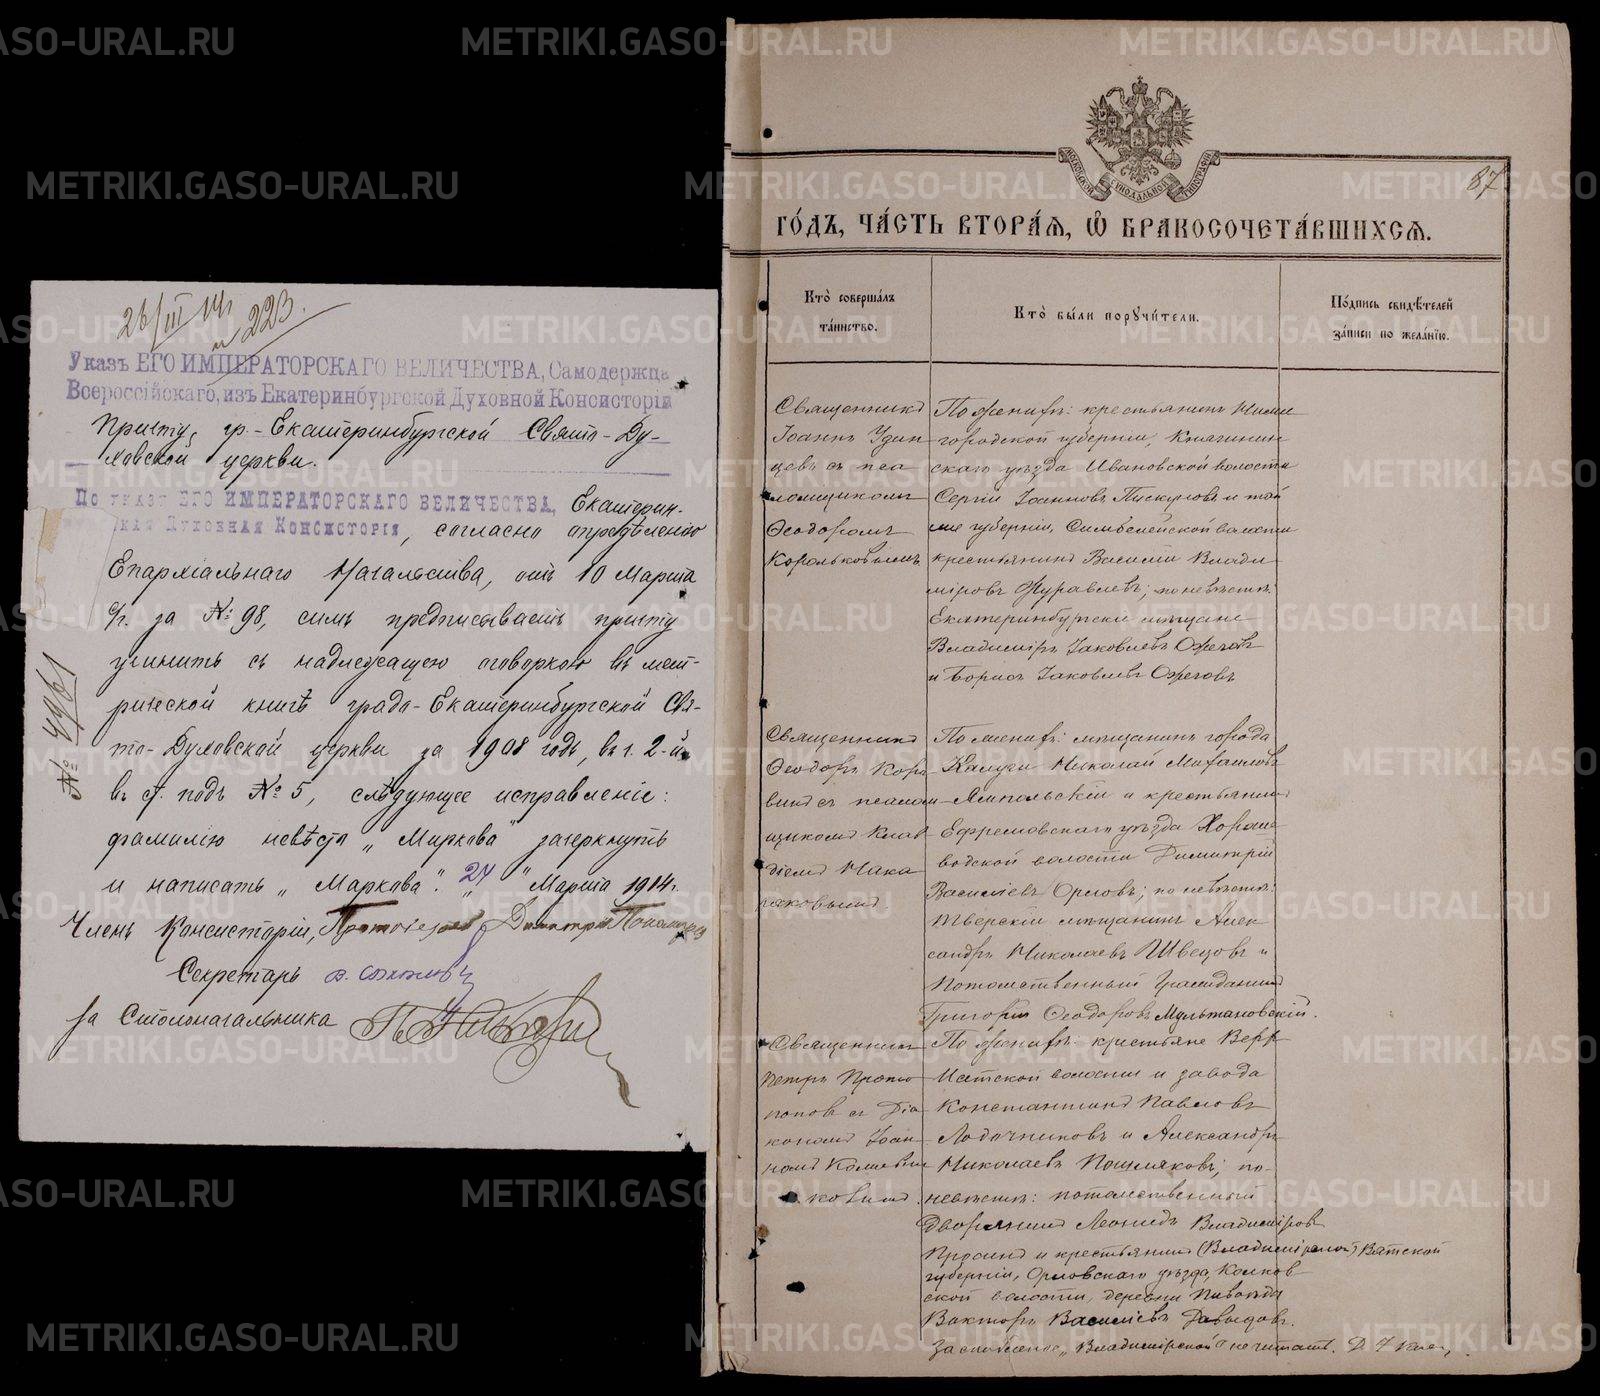 26/III 14г.
№ 223.
Указъ ЕГО ИМПЕРАТОРСКАГО ВЕЛИЧЕСТВА, Самодержца
Всероссійскаго, изъ Екатеринбургской Духовной Консисторіи
Причту гр.-Екатеринбургской Свято-Ду-
ховской церкви.
По указу ЕГО ИМПЕРАТОРСКАГО ВЕЛИЧЕСТВА, Екатерин-
Духовная Консисторія, согласно опредѣленію
Епархіальнаго Начальства, отъ 10 Марта
с/г. за № 98, симъ предписываетъ причту
учинить съ надлежащею оговоркою въ мет-
рической книгѣ градо-Екатеринбургской Свя-
то-Духовской церкви за 1908 годъ, въ ч. 2-й,
въ ст. подъ № 5, слѣдующее исправленіе:
фамилію невѣсты „Миркова" зачеркнуть
и написать „Маркова". „24" Марта 1914 г.
Членъ Консисторіи, Протоіерей Димитрій
Секретарь
За Столоначальника
№ 4961
87
МОСКОВСКОЙ СѴНОДАЛЬНОЙ ТИПОГРАФІИ
ГО́ДЪ, ЧА́СТЬ ВТОРА́Я, Ѽ БРАКОСОЧЕТА́ВШИХСЯ.
Кто̀ соверша́лъ
та́инство.
Кто̀ бы́ли порꙋчи́тели.
По́дпись свидѣ́телей
за́писи по жела́нїю.
Священникъ
Іоаннъ Удин
цевъ съ пса
ломщикомъ
Ѳеодоромъ
Корольковымъ
По женихѣ: крестьянинъ Ниже
городской губерніи, Княгинин
скаго уѣзда Ивановской волости
Сергій Іоанновъ Пискуновъ и той
же губерніи, волости
крестьянинъ Василій Влади
міровъ Журавлевъ; по невѣстѣ:
Екатеринбургскіе мѣщане
Владиміръ Іаковлевъ Ожеговъ
и Борисъ Іаковлевъ Ожеговъ
Священникъ
Ѳеодоръ Коро
винъ съ псалом
щикомъ Клав
діемъ Мака
ряковымъ.
По женихѣ: мѣщанинъ города
Калуги Николай Михаиловъ
Ямпольскій и крестьянинъ
Ефремовскаго уѣзда Хороше
водской волости Димитрій
Василіевъ Орловъ; по невѣстѣ:
Тверскій мѣщанинъ Алек
сандръ Николаевъ Швецовъ и
Потомственный Гражданинъ
Григорій Ѳеодоровъ Мультановскій.
Священникъ
Петръ Прото
поповъ съ Діа
кономъ Іоан
номъ
ковымъ.
По женихѣ: крестьяне Верх
Исетской волости и завода
Константинъ Павловъ
Лодочниковъ и Александръ
Николаевъ Пошляковъ; по
невѣстѣ: потомственный
Дворянинъ Леонидъ Владиміровъ
и крестьянинъ (Владимірской) Вятской
губерніи, Орловскаго уѣзда,
ской волости, деревни
Викторъ Василіевъ Давыдовъ.
„Владимірской" не читать.